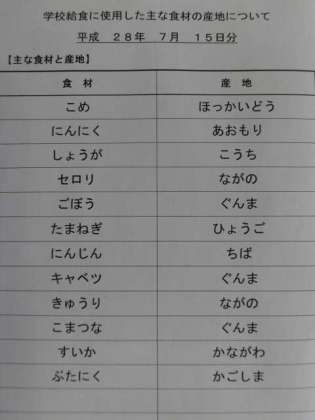 学校給食に使用した主な食材の産地について
平成 ２８年 ７月 １５日分
【主な食材と産地】
食 材 産 地
こめ ほっかいどう
にんにく あおもり
しょうが こうち
セロリ ながの
ごぼう ぐんま
たまねぎ ひょうご
にんじん ちば
キャベツ ぐんま
きゅうり ながの
こまつな ぐんま
すいか かながわ
ぶたにく かごしま